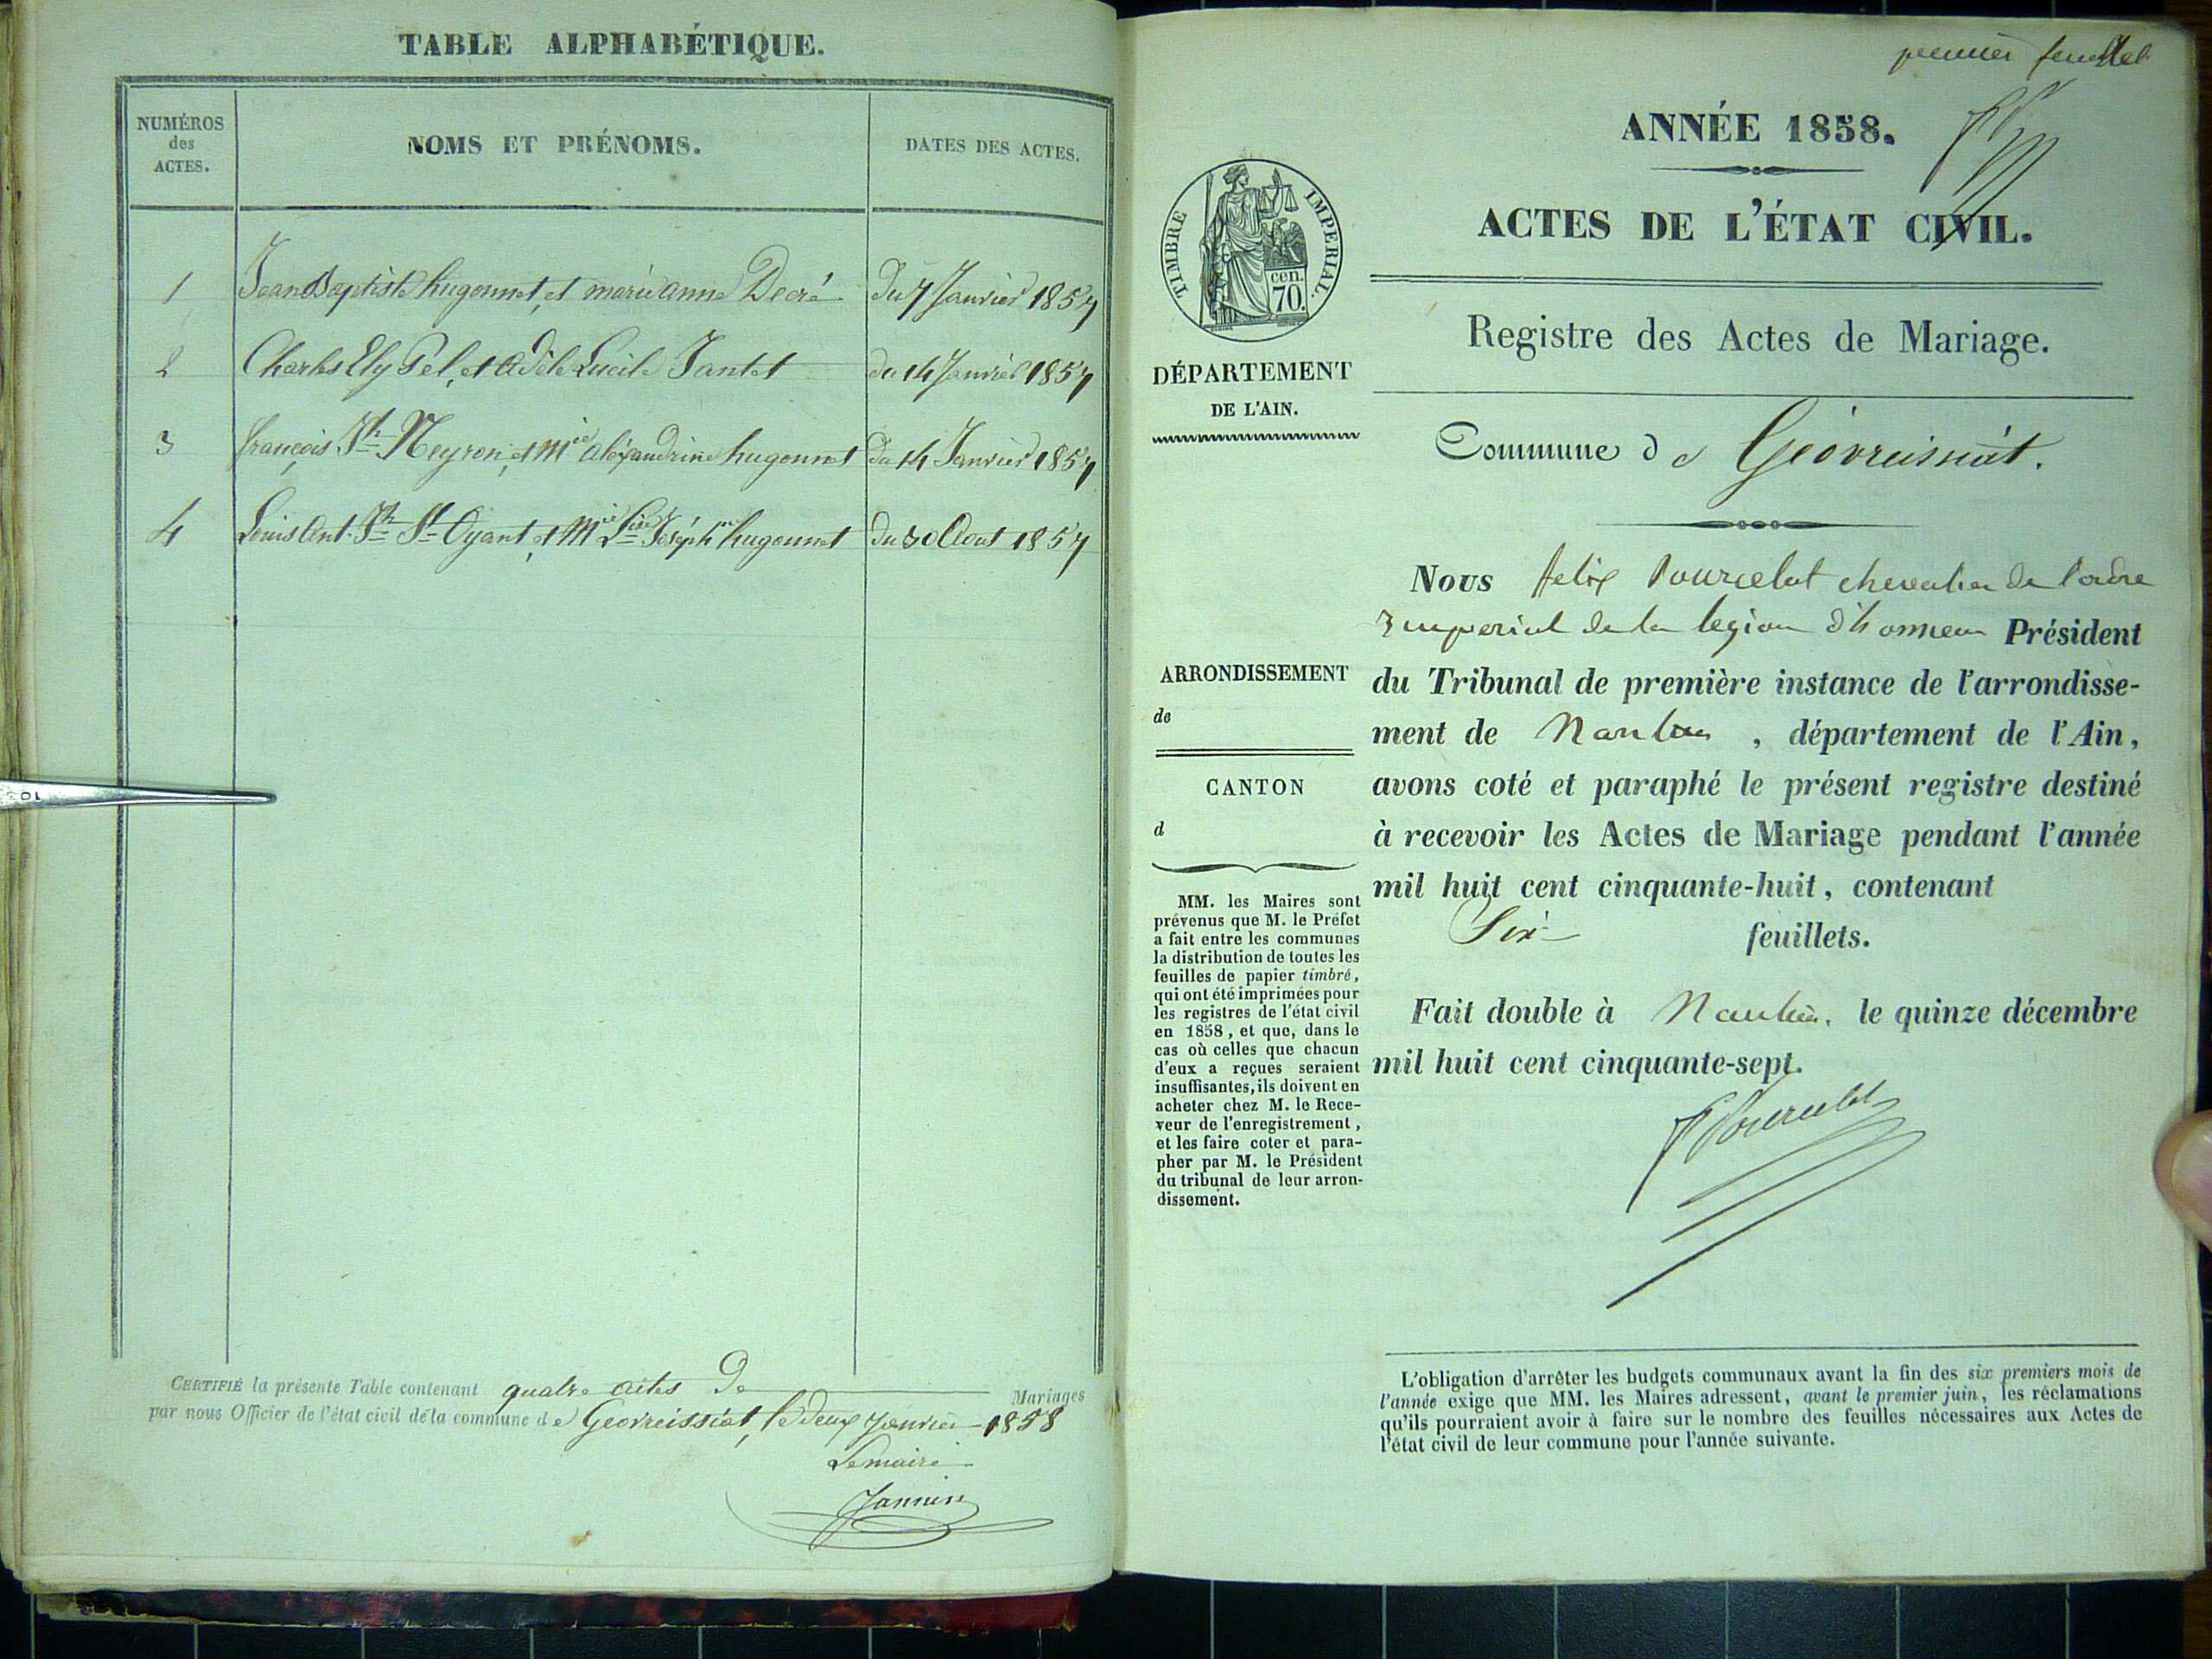 TABLE ALPHABÉTIQUE.
NUMÉROS
des
ACTES.
NOMS ET PRÉNOMS.
DATES DES ACTES.
1 Jean Baptiste hugonnet, et marie anne Decré du 7 Janvier 1857
2 Charles Ely Pél, et Adèle Lucile Jantet du 14 Janvier 1857
3 françois Jh Neyron, et Mie aléxandrine hugonnet du 14 Janvier 1857
4 Louis Ant. Jh St Oyant, et Mie Lise Joséphne hugonnet du 30 Aout 1857
CERTIFIÉ la présente Table contenant quatre actes De Mariages
par nous Officier de l'état civil de la commune de Geovreissiat, le deux Janvier 1858
Le maire
Jannin
premier feuillet
ANNÉE 1858.
ACTES DE L'ÉTAT CIVIL.
TIMBRE IMPERIAL.
cen.
70.
Registre des Actes de Mariage.
DÉPARTEMENT
DE L'AIN.
Commune de Géovreissiat.
Nous felix Pourcelot chevalier de l'ordre
Imperial de la legion d'honneur Président
du Tribunal de première instance de l'arrondisse-
ment de Nantua, département de l'Ain,
avons coté et paraphé le présent registre destiné
à recevoir les Actes de Mariage pendant l'année
mil huit cent cinquante-huit, contenant
Six feuillets.
Fait double à Nantua, le quinze décembre
mil huit cent cinquante-sept.
Pourcelot
ARRONDISSEMENT
de
CANTON
d
MM. les Maires sont
prévenus que M. le Préfet
a fait entre les communes
la distribution de toutes les
feuilles de papier timbré,
qui ont été imprimées pour
les registres de l'état civil
en 1858, et que, dans le
cas où celles que chacun
d'eux a reçues seraient
insuffisantes, ils doivent en
acheter chez M. le Rece-
veur de l'enregistrement,
et les faire coter et para-
pher par M. le Président
du tribunal de leur arron-
dissement.
L'obligation d'arrêter les budgets communaux avant la fin des six premiers mois de
l'année exige que MM. les Maires adressent, avant le premier juin, les réclamations
qu'ils pourraient avoir à faire sur le nombre des feuilles nécessaires aux Actes de
l'état civil de leur commune pour l'année suivante.